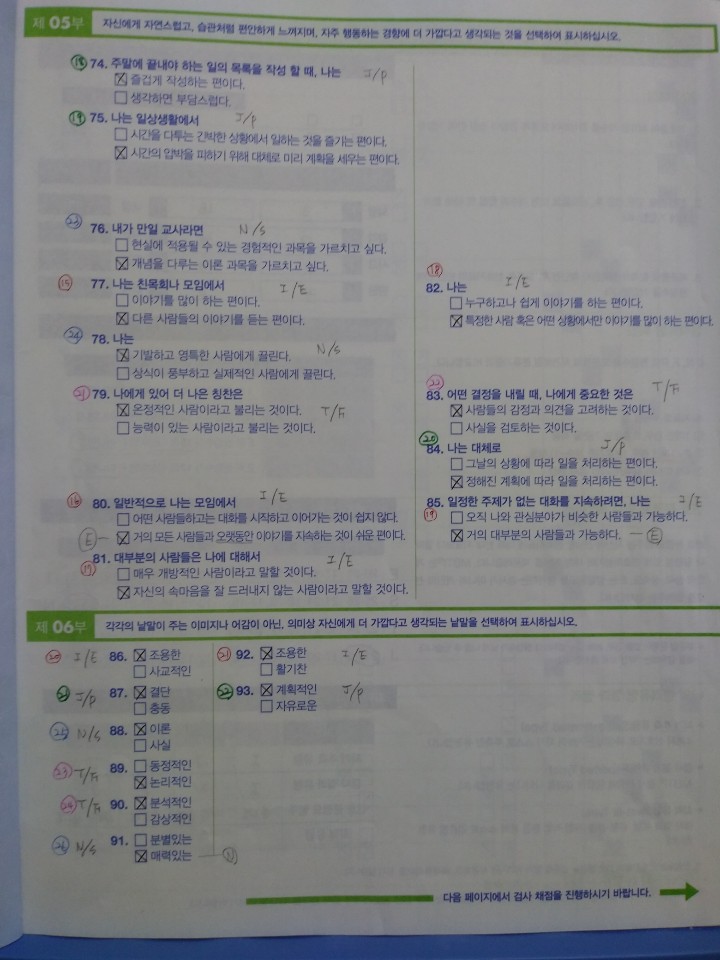 제 05부 자신에게 자연스럽고, 습관처럼 편안하게 느껴지며, 자주 행동하는 경향에 더 가깝다고 생각되는 것을 선택하여 표시하십시오.
⑱ 74. 주말에 끝내야 하는 일의 목록을 작성 할 때, 나는 J/P
즐겁게 작성하는 편이다.
생각하면 부담스럽다.
⑲ 75. 나는 일상생활에서 J/P
시간을 다투는 긴박한 상황에서 일하는 것을 즐기는 편이다.
시간의 압박을 피하기 위해 대체로 미리 계획을 세우는 편이다.
㉓ 76. 내가 만일 교사라면 N/S
현실에 적용될 수 있는 경험적인 과목을 가르치고 싶다.
개념을 다루는 이론 과목을 가르치고 싶다.
⑮ 77. 나는 친목회나 모임에서 I/E
이야기를 많이 하는 편이다.
다른 사람들의 이야기를 듣는 편이다.
㉔ 78. 나는 N/S
기발하고 영특한 사람에게 끌린다.
상식이 풍부하고 실제적인 사람에게 끌린다.
㉑ 79. 나에게 있어 더 나은 칭찬은
온정적인 사람이라고 불리는 것이다. T/F
능력이 있는 사람이라고 불리는 것이다.
⑯ 80. 일반적으로 나는 모임에서 I/E
어떤 사람들하고는 대화를 시작하고 이어가는 것이 쉽지 않다.
Ⓔ 거의 모든 사람들과 오랫동안 이야기를 지속하는 것이 쉬운 편이다.
81. 대부분의 사람들은 나에 대해서 I/E
매우 개방적인 사람이라고 말할 것이다.
자신의 속마음을 잘 드러내지 않는 사람이라고 말할 것이다.
⑱
82. 나는 I/E
누구하고나 쉽게 이야기를 하는 편이다.
특정한 사람 혹은 어떤 상황에서만 이야기를 많이 하는 편이다.
㉒
83. 어떤 결정을 내릴 때, 나에게 중요한 것은 T/F
사람들의 감정과 의견을 고려하는 것이다.
사실을 검토하는 것이다.
⑳
84. 나는 대체로 J/P
그날의 상황에 따라 일을 처리하는 편이다.
정해진 계획에 따라 일을 처리하는 편이다.
85. 일정한 주제가 없는 대화를 지속하려면, 나는 I/E
⑲ 오직 나와 관심분야가 비슷한 사람들과 가능하다.
거의 대부분의 사람들과 가능하다. Ⓔ
제 06부 각각의 낱말이 주는 이미지나 어감이 아닌, 의미상 자신에게 더 가깝다고 생각되는 낱말을 선택하여 표시하십시오.
⑳ I/E 86. 조용한
사교적인
㉑ J/P 87. 결단
충동
㉕ N/S 88. 이론
사실
㉓ T/F 89. 동정적인
논리적인
㉔ T/F 90. 분석적인
감상적인
㉖ N/S 91. 분별있는
매력있는 Ⓝ
㉑ 92. 조용한 I/E
활기찬
㉒ 93. 계획적인 J/P
자유로운
다음 페이지에서 검사 채점을 진행하시기 바랍니다.